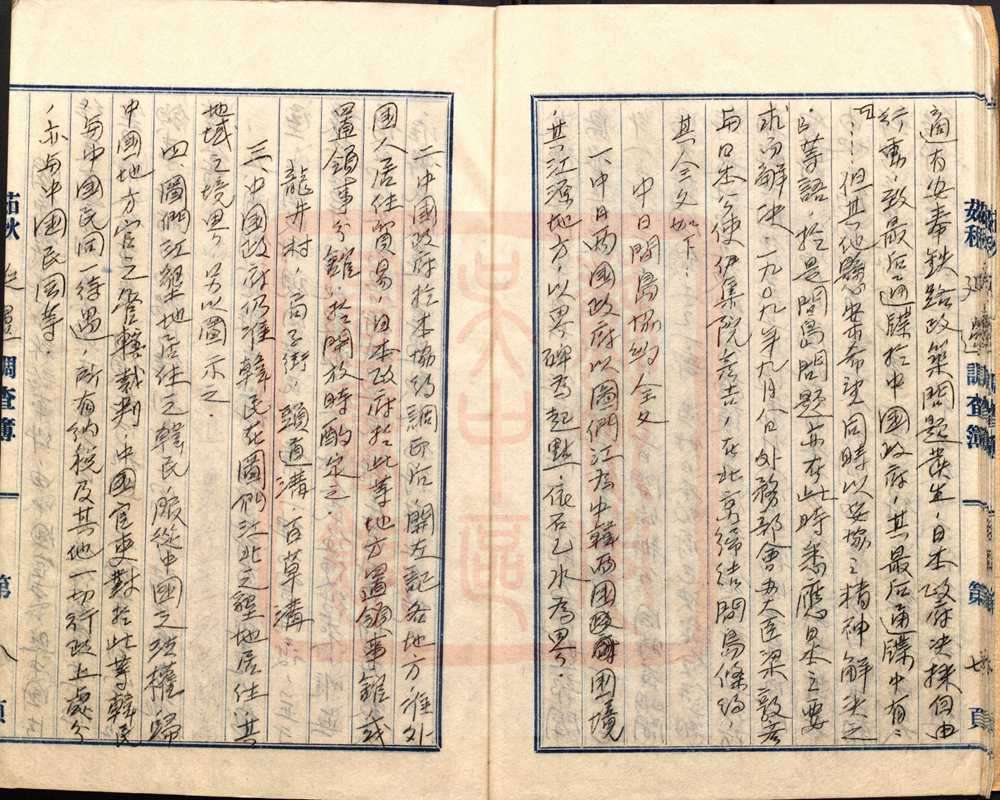 適有安奉鉄路改築問題発生，日本政府决採自由
行動，致最后通牒於中国政府，其最后通牒中有：
曰……但其他懸案希望同時以妥協之精神解决之
，等語，於是間島問題亦在此時悉應日本之要
求而解决，一九〇九年九月八日外務部会办大臣梁敦彦
与日本公使伊集院彦吉，在北京缔结間島條約，
其全文如下：
中日間島協約全文
一、中日両國政府以圖們江為中韓両国国境
，其江源地方，以界碑為起點，依石乙水為界。
二、中國政府於本協約調印后，開左記各地方准外
國人居住貿易，日本政府於此等地方置領事館或
置領事分館，於開放時酌定之。
龍井村，局子街，頭道溝，百草溝
三、中國政府仍准韓民在圖們江北之墾地居住，其
地域之境界，另以圖示之。
四、圖們江墾地居住之韓民，服從中國之法權，歸
中國地方官之管轄裁判，中國官吏對於此等韓民
，与中國民同一待遇，所有纳税及其他一切行政上處分
，亦与中國民同等。
調查簿
第八頁
調查簿
第七頁